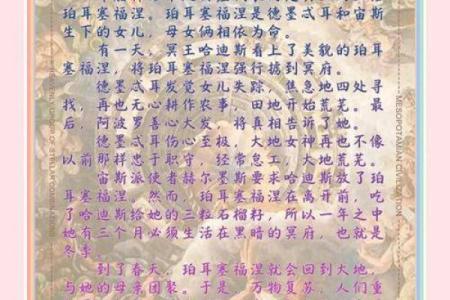 塞福涅。珀耳塞福涅是德墨忒耳和宙斯
生下的女儿，母女俩相依为命。
有一天，冥王哈迪斯看上了美貌的珀耳
塞福涅，将珀耳塞福涅强行掳到冥府。
德墨忒耳发觉女儿失踪，焦急地四处寻
找，再也无心耕作农事，田地开始荒芜。最
后，阿波罗善心大发，将真相告诉了她。
德墨忒耳伤心至极，大地女神再也不像
以前那样忠于职守，经常怠工，大地荒芜。
宙斯派使者赫尔墨斯要求哈迪斯放了珀
耳塞福涅。然而，珀耳塞福涅在离开前，吃
了哈迪斯给她的三粒石榴籽，所以一年之中
她有三个月必须生活在黑暗的冥府，也就是
冬季。
到了春天，珀耳塞福涅就会回到大地，
与她的母亲团聚。于是，万物复苏，人们重
MESOPOTAMIAN CIVILIZATION